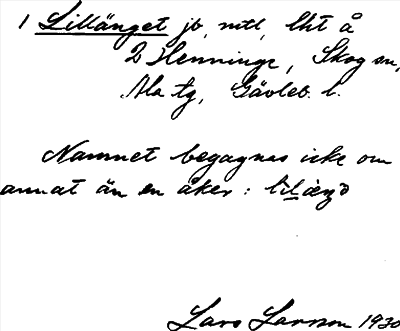 1 Lillänget jb, mtl, lht å
2 Henninge, Skog sn,
Ala tg, Gävleb. l.
Namnet begagnas icke om
annat än en åker: lil
Lars Larsson 1930